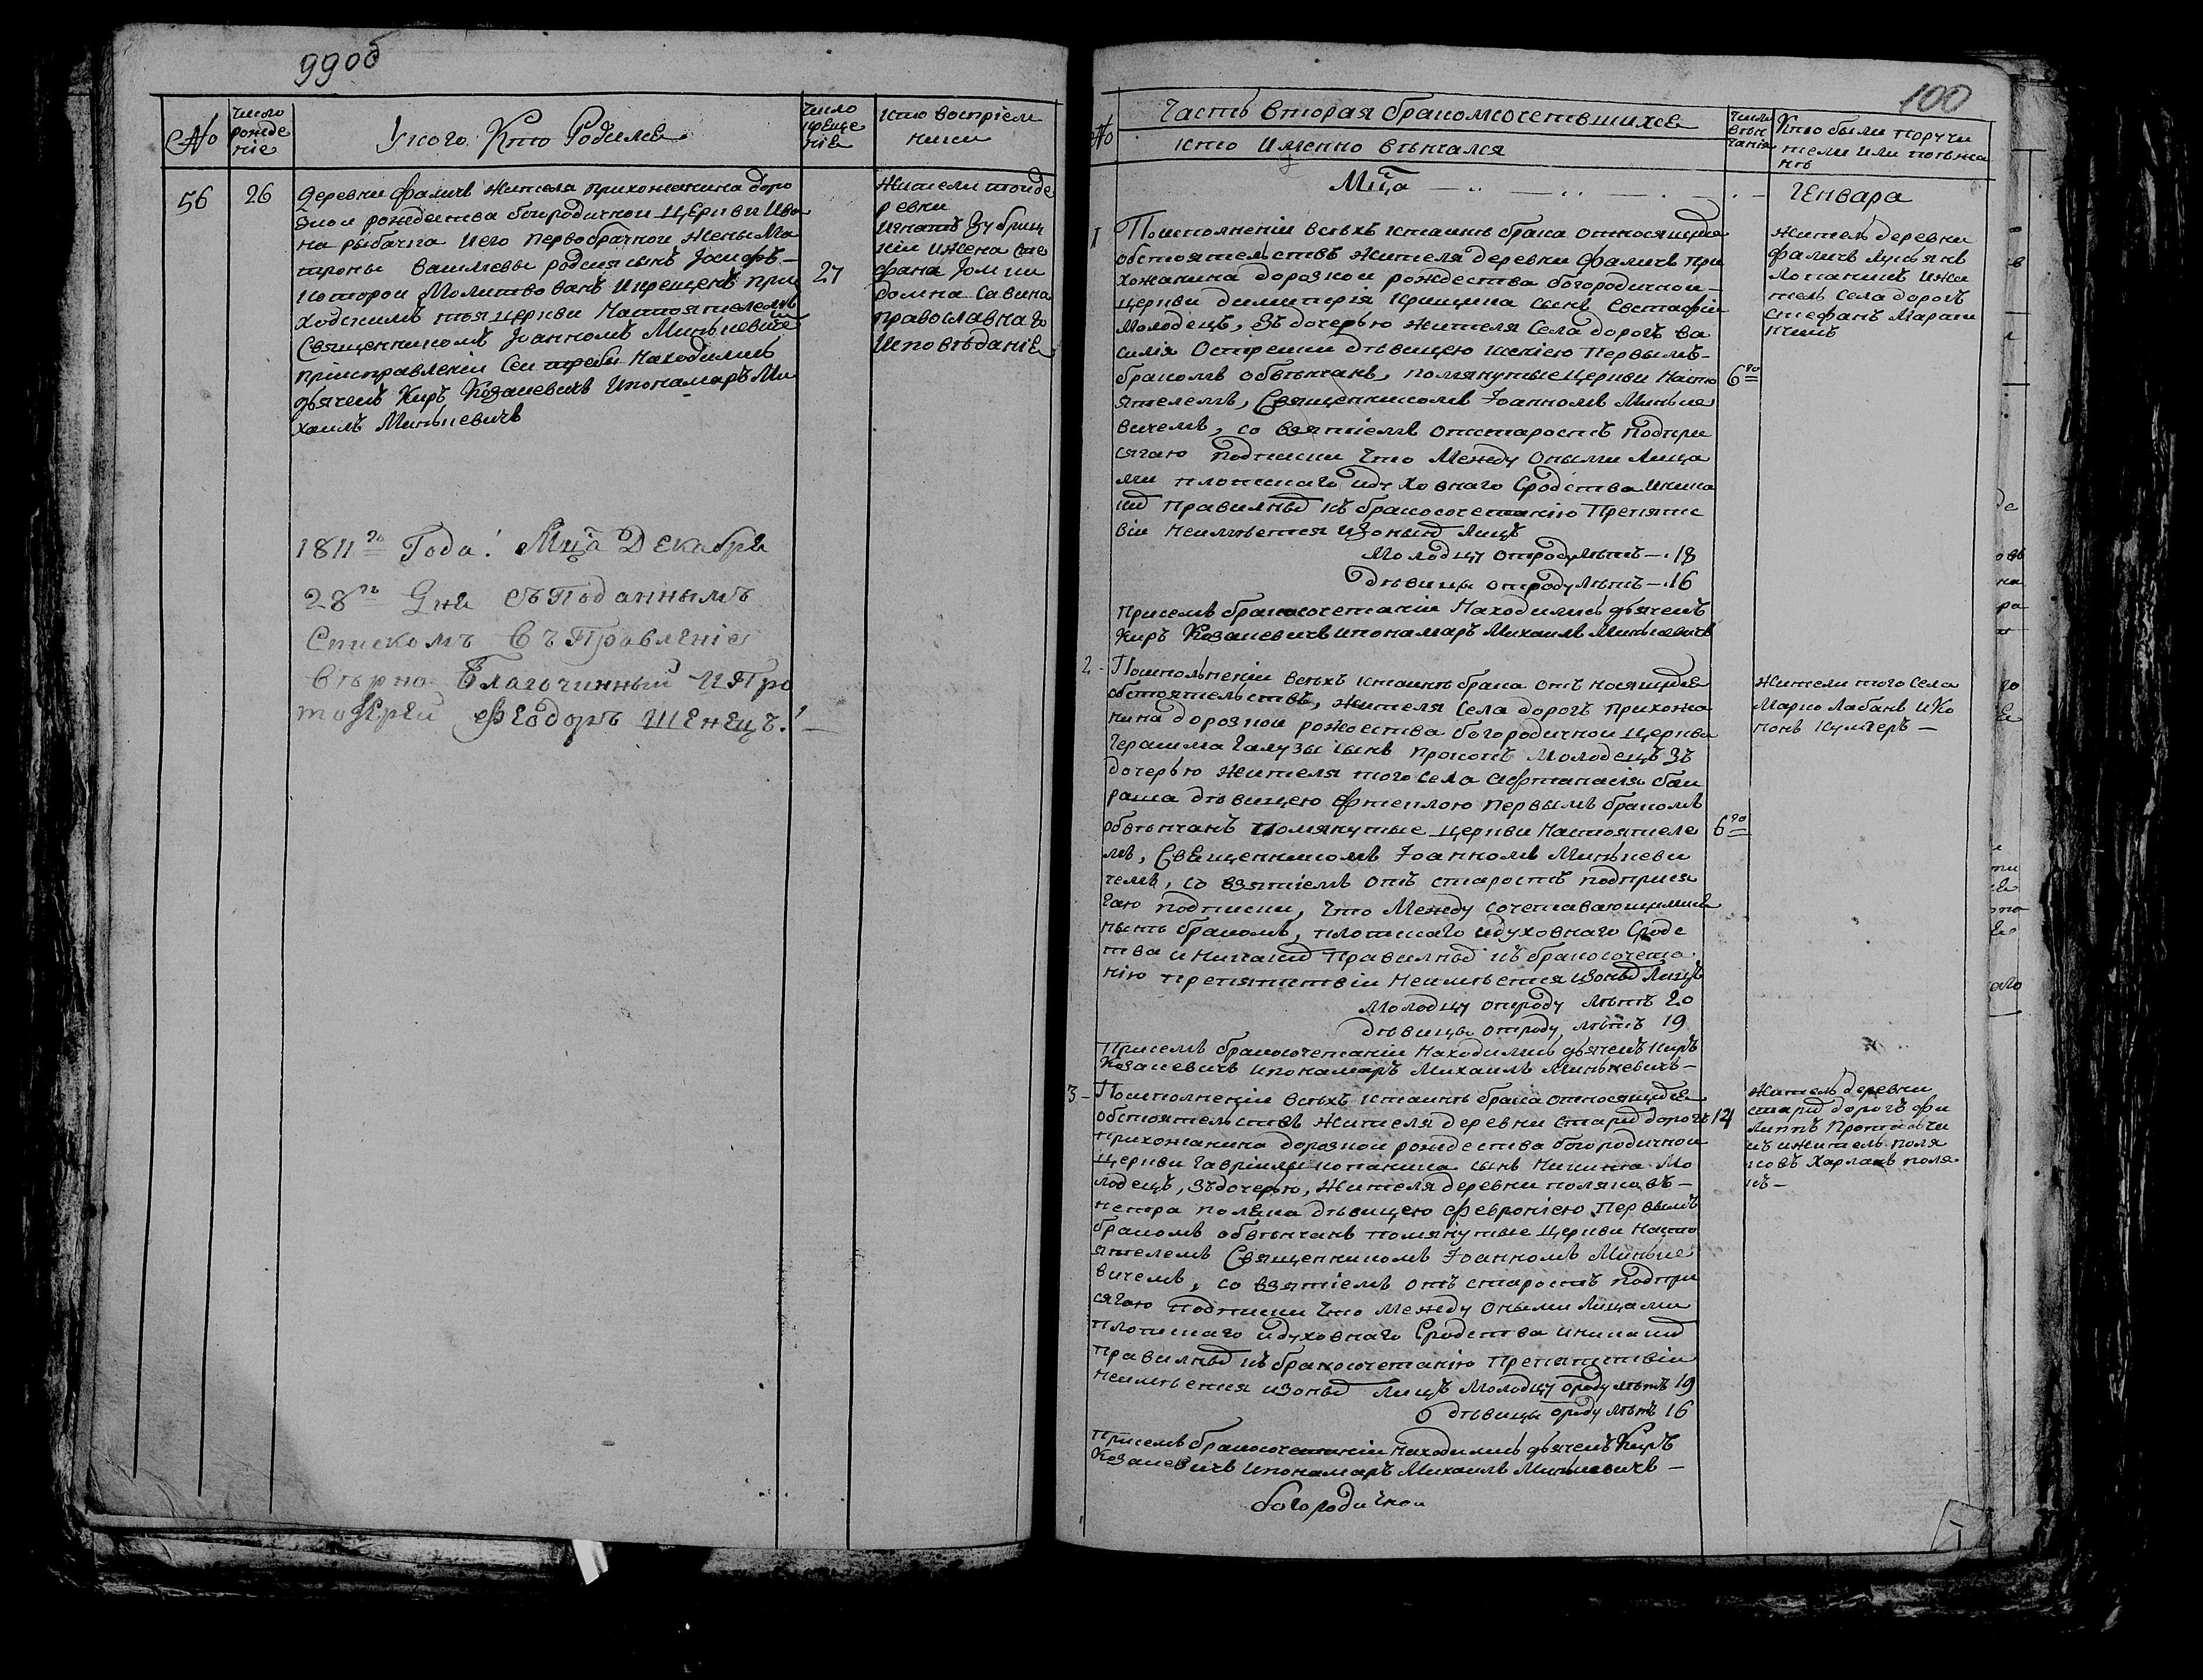 99об
№
число
рожде
ніе
У кого Кто Родился
число
креще
ніе
кто воспріем
ники
56
26
Деревни Фаличь жителя прихожанина доро
зкои рождества богородичнои церкви Ива
на рыбачка и его первобрачнои жены Ма
троны Васильевы родился сынъ Іосифъ
которои Молитвованъ и крещенъ при
27
ходскимъ тоя церкви Настоятелемъ
Священникомъ Іоанномъ Минкевиче
приисправленіи сеи требы Находились
дьячекъ Киръ Козакевичъ и пономаръ Ми
хаилъ Минкевичъ
жители тоиде
ревни
Игнатъ Зубриц
кіи и жена Сте
фана
домна Савина
православнаго
Исповѣданія
1811го Года: Мца Декабря
28го Дня съ Поданнымъ
Спискомъ Въ Правленіе
вѣрно Благочинный и Про
тоіерей Феодоръ Шенецъ!
100
№
Часть вторая бракомсочетавшихся
кто Именно вѣнчался
число
вѣн
чанія
Кто были поручи
тели или поезжа
не
Мца
Генвара
1
Поисполненіи всѣхъ ктаинѣ брака относящихся
обстоятельствъ жителя деревни фаличь при
хожанина дорозкои рождества богородичнои
церкви димитерія крищика сынъ Евстафіи
молодецъ, Зъ дочерью жителя Села дорогъ ва
силія дѣвицею первымъ
бракомъ обвѣнчанъ, помянутые церкви Насто
6го
ятелемъ, Священникомъ Іоанномъ Минке
вичемъ, со взятіемъ отстаростъ подпри
сягаю подписки что Между оными Лица
ми плотскаго идуховнаго Сродства иника
ких правилных къ бракосочетанію Препятс
віи Неимѣется изоных Лицъ
Молодцу отродулѣтъ — 18
дѣвицы отродулѣтъ — 16
присемъ бракосочетаніи Находились дьячекъ
Киръ Козакевичъ и пономаръ Михаилъ Минкевичъ
жителъ деревни
фаличь Лукьянъ
Потапикъ и жи
тель Села дорогъ
стефанъ
2
Поисполненіи всѣхъ ктаинѣ брака отъносящихся
обстоятельствъ, жителя Села дорогъ прихожа
нина дорозкои рожества богородичнои церкви
Герасима Галузы сынъ прокопъ Молодецъ Зъ
дочерью жителя того Села Афтанасія
дѣвицею первымъ бракомъ
обвѣнчанъ помянутые церкви Настоятеле
6го
мъ, Священникомъ Іоанномъ Минкеви
чемъ, со взятіемъ отъ старостъ подприся
гаю подписки, что Между сочетавающимися
бракомъ, плотскаго идуховнаго Сродс
тва иникаких Правилных къ бракосочета
нію препятствіи Неимѣется изоных Лицъ
Молодцу отроду лѣтъ 20
дѣвицы отроду лѣтъ 19
Присемъ бракосочетаніи Находились дьячекъ киръ
Козакевичъ и пономаръ Михаилъ Минкевичъ
жители того Села
Марко Лабанъ и Ко
нонъ
3
Поисполненіи всѣхъ ктаинѣ брака относящихся
обстоятельствъ жителя деревни старых дорогъ
14
прихожанина дорозкои рождества богородичнои
церкви Гавріилы потапика сынъ Никита Мо
лодецъ, Зъдочерью, жителя деревни поляковъ
дѣвицею Февроніею Первымъ
бракомъ обвѣнчанъ помянутые церкви Насто
ятелемъ Священникомъ Іоанномъ Минке
вичемъ, со взятіемъ отъ старостъ подпри
сягаю подписки что между оными Лицами
плотскаго идуховнаго Сродства иникаких
правилных къ бракосочетанію Препятствіи
неимѣется изоных Лицъ Молодцу ороду лѣтъ 19
дѣвицы ороду лѣтъ 16
присемъ бракосочетаніи Находились дьячекъ Киръ
Козакевичъ и пономаръ Михаилъ Минкевичъ
жителъ деревни
старых дорогъ фи
липпъ
и жителъ поля
ковъ Харлапъ поля
къ
богородичнои